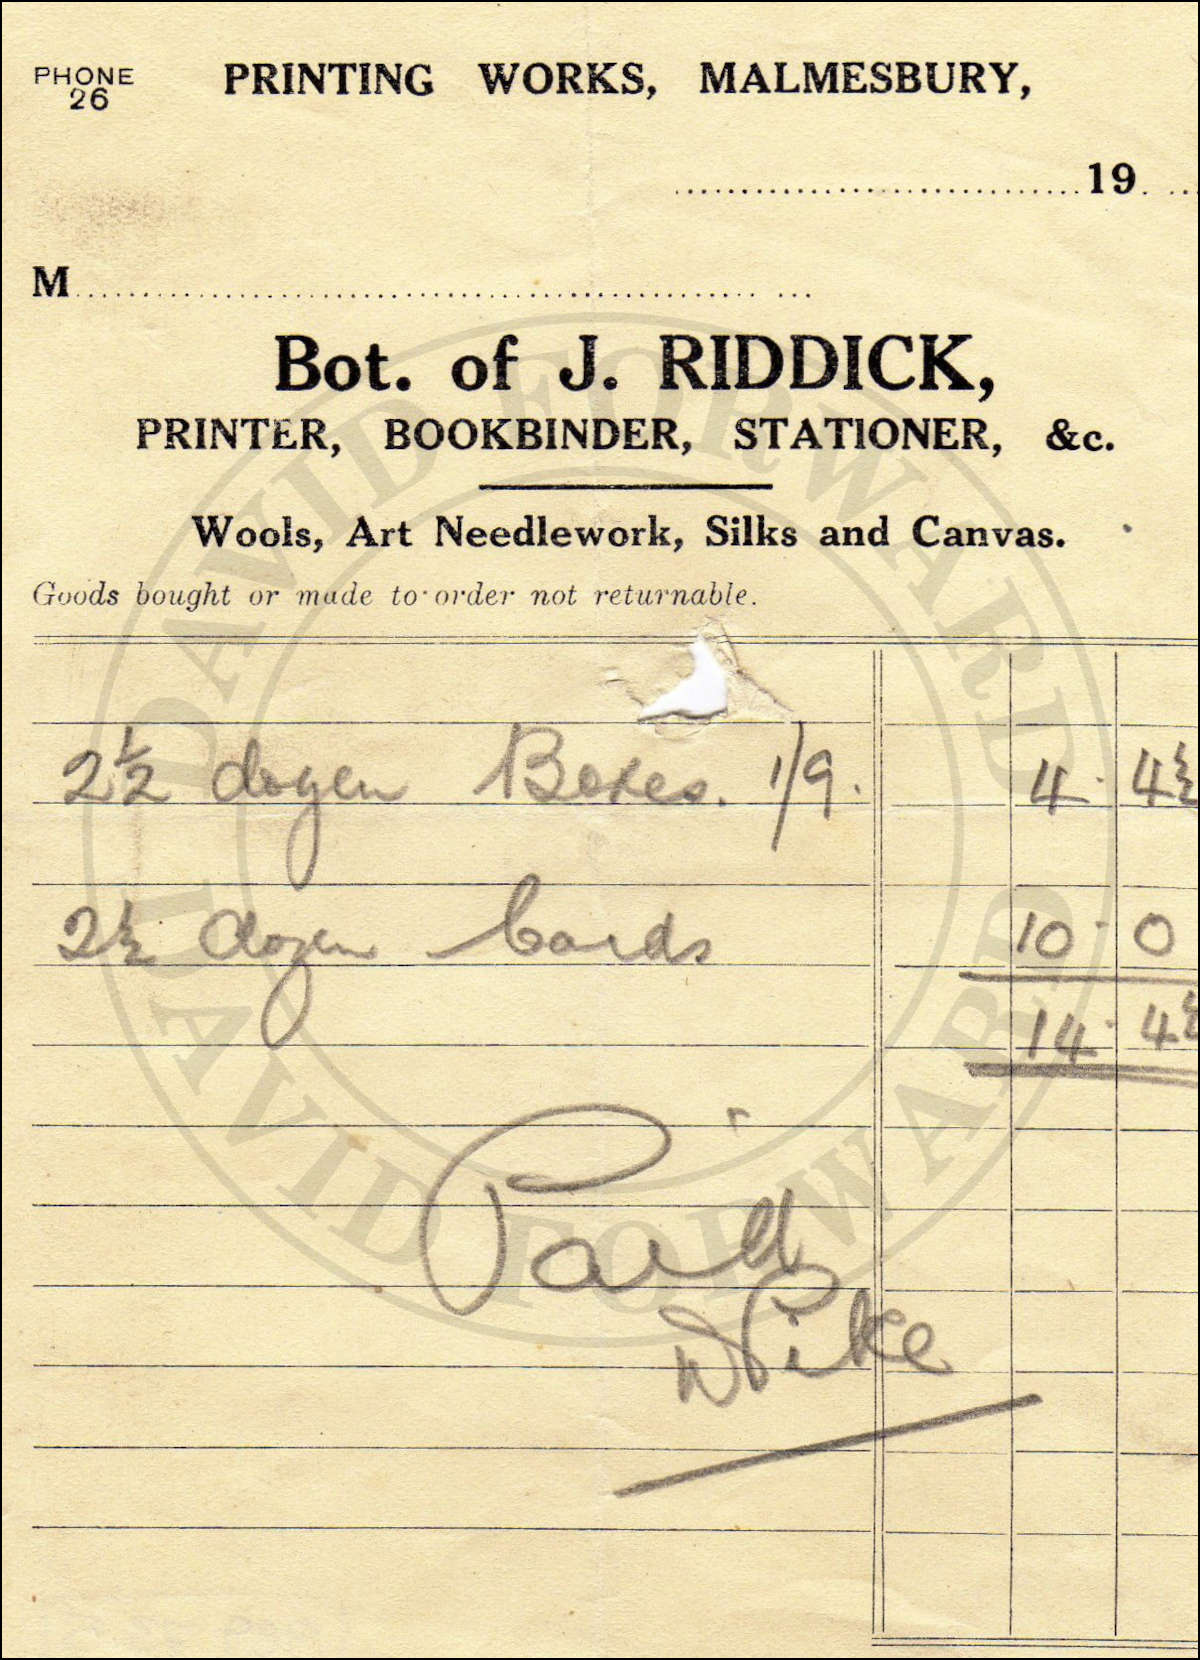 PHONE 26
PRINTING WORKS, MALMESBURY,
19
M
Bot. of J. RIDDICK,
PRINTER, BOOKBINDER, STATIONER, &c.
Wools, Art Needlework, Silks and Canvas.
Goods bought or made to order not returnable.
2½ dozen Boxes. 1/9. 4. 4½
2½ dozen Cards 10. 0
14. 4½
Paid
W Pike
DAVID FORWARD
DAVID FORWARD